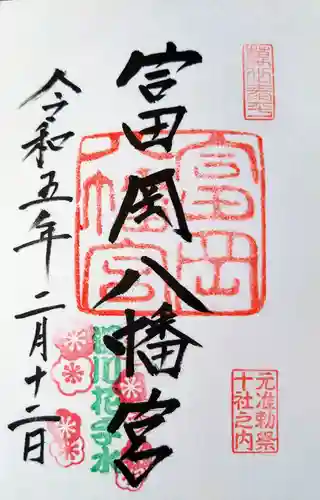 富岡八幡宮
令和五年二月十二日
富岡八幡宮
元准勅祭
十社之内
深川花手水